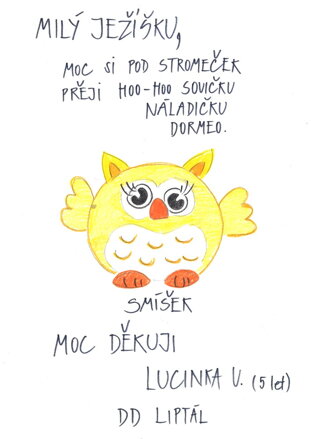 MILÝ JEŽÍŠKU,
MOC SI POD STROMEČEK
PŘEJI HOO-HOO SOVIČKU
NÁLADIČKU
DORMEO.
SMÍŠEK
MOC DĚKUJI
LUCINKA V. (5 let)
DD LIPTÁL